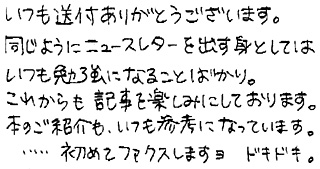 いつも送付ありがとうございます。
同じようにニュースレターを出す身としては
いつも勉強になることばかり。
これからも記事を楽しみにしております。
本のご紹介も、いつも参考になっています。
‥‥ 初めてファクスしますョ ドキドキ。